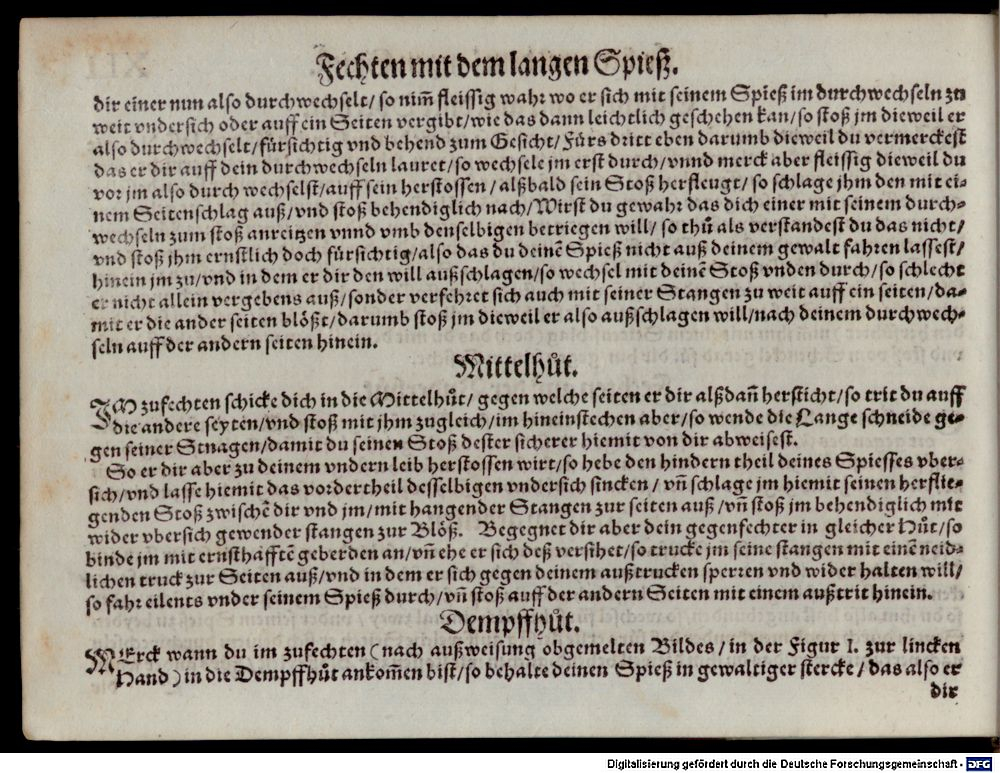 Fechten mit dem langen Spieß.
dir einer nun also durchwechselt/ so nim̃ fleissig wahr wo er sich mit seinem Spieß im durchwechseln zu
weit vndersich oder auff ein Seiten vergibt/ wie das dann leichtlich geschehen kan/ so stoß jm dieweil er
also durchwechselt/ fürsichtig vnd behend zum Gesicht/ Fürs dritt eben darumb dieweil du vermerckest
das er dir auff dein durchwechseln lauret/ so wechsele jm erst durch/ vnnd merck aber fleissig dieweil du
vor jm also durch wechselst/ auff sein herstossen/ alßbald sein Stoß herfleugt/ so schlage jhm den mit ei⸗
nem Seitenschlag auß/ vnd stoß behendiglich nach/ Wirst du gewahr das dich einer mit seinem durch⸗
wechseln zum stoß anreitzen vnnd vmb denselbigen betriegen will/ so thů als verstandest du das nicht/
vnd stoß jhm ernstlich doch fürsichtig/ also das du deinẽ Spieß nicht auß deinem gewalt fahren lassest/
hinein jm zu/ vnd in dem er dir den will außschlagen/ so wechsel mit deinẽ Stoß vnden durch/ so schlecht
er nicht allein vergebens auß/ sonder verfehret sich auch mit seiner Stangen zu weit auff ein seiten/ da⸗
mit er die ander seiten blößt/ darumb stoß jm dieweil er also außschlagen will/ nach deinem durchwech⸗
seln auff der andern seiten hinein.
Mittelhůt.
IM zufechten schicke dich in die Mittelhůt/ gegen welche seiten er dir alßdañ hersticht/ so trit du auff
die andere seyten/ vnd stoß mit jhm zugleich/ im hineinstechen aber/ so wende die Lange schneide ge⸗
gen seiner Stnagen/ damit du seinen Stoß dester sicherer hiemit von dir abweisest.
So er dir aber zu deinem vndern leib herstossen wirt/ so hebe den hindern theil deines Spiesses vber⸗
sich/ vnd lasse hiemit das vordertheil desselbigen vndersich sincken/ vñ schlage jm hiemit seinen herflie⸗
genden Stoß zwischẽ dir vnd jm/ mit hangender Stangen zur seiten auß/ vñ stoß jm behendiglich mit
wider vbersich gewender stangen zur Blöß. Begegnet dir aber dein gegenfechter in gleicher Hůt/ so
binde jm mit ernsthafftẽ geberden an/ vñ ehe er sich deß versihet/ so trucke jm seine stangen mit einẽ neid⸗
lichen truck zur Seiten auß/ vnd in dem er sich gegen deinem außtrucken sperren vnd wider halten will/
so fahr eilents vnder seinem Spieß durch/ vñ stoß auff der andern Seiten mit einem außtrit hinein.
Dempffhůt.
MErck wann du im zufechten (nach außweisung obgemelten Bildes/ in der Figur I. zur lincken
Hand) in die Dempffhůt ankom̃en bist/ so behalte deinen Spieß in gewaltiger stercke/ das also er
dir
Digitalisierung gefördert durch die Deutsche Forschungsgemeinschaft - DFG